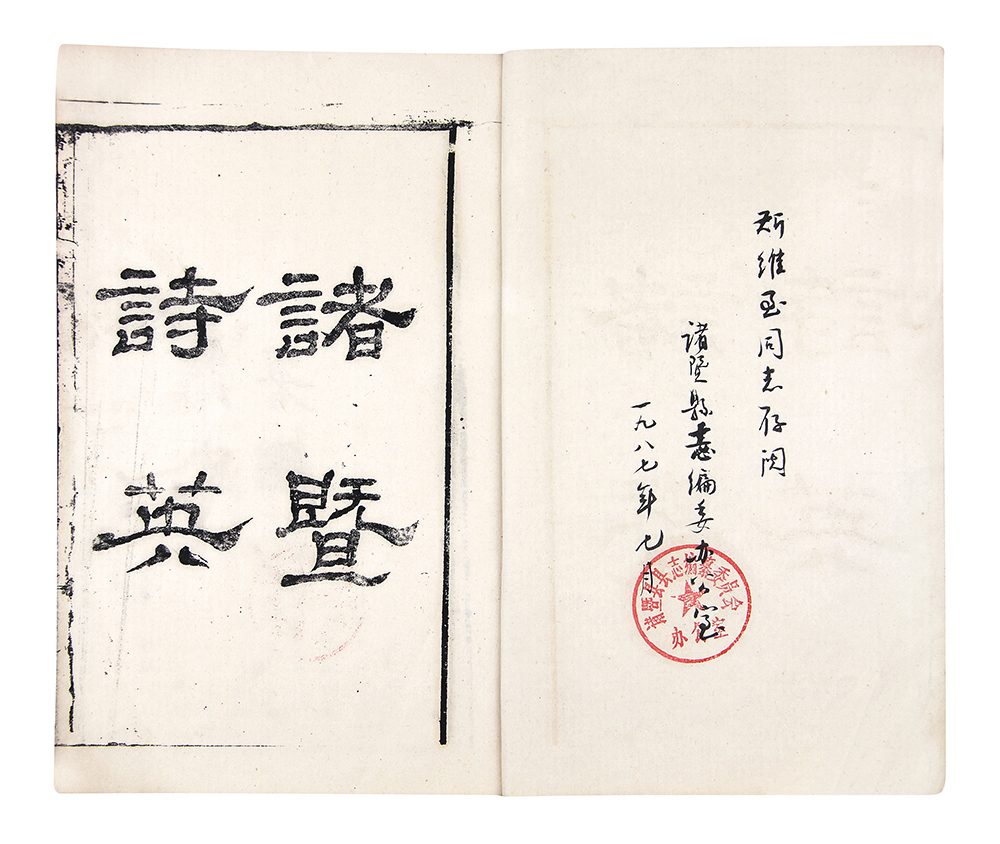 斯维至同志存阅
诸暨縣志编委办公室
一九八七年七月
诸暨县县志编纂委员会
办公室
諸暨
詩英